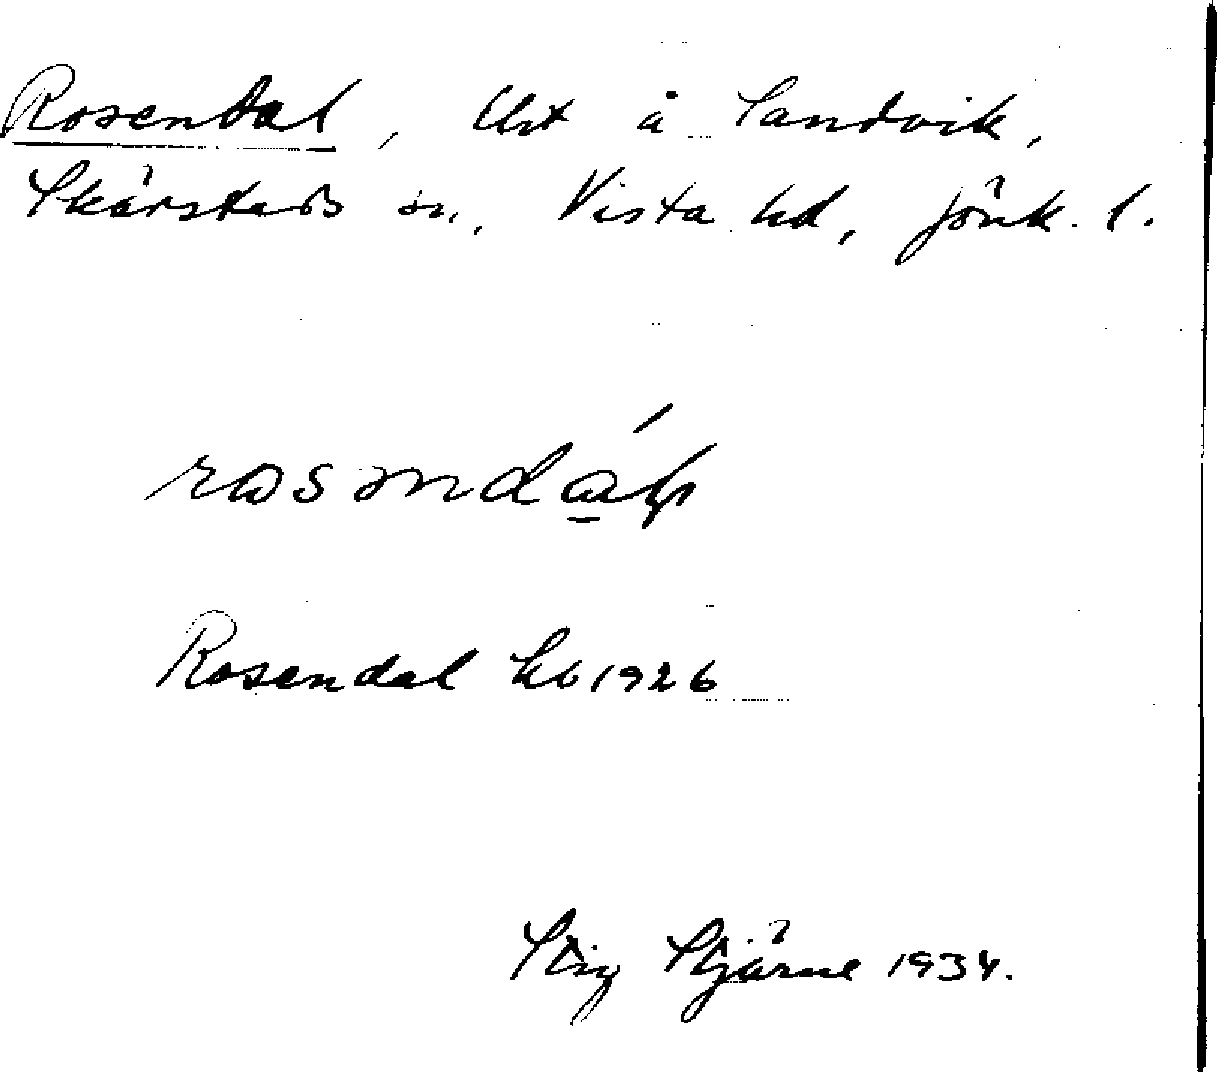 Rosendal, lht å Sandvik,
Skärstads sn, Vista hd, Jönk. l.
rosəndáḷ
Rosendal hb 1926
Stig Stjärne 1934.